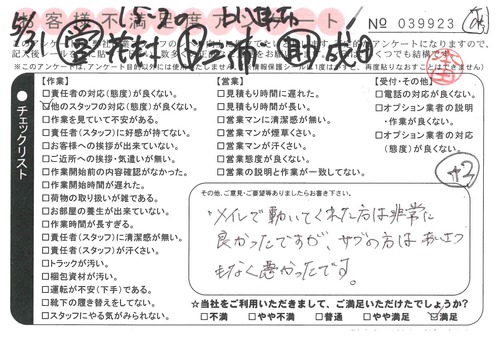 お客様不満足度アンケート
No 039923
5/31
15-20
※このアンケートは、アンケート目的以外には使用いたしません。
【作業】
□責任者の対応(態度)が良くない。
☑他のスタッフの対応(態度)が良くない。
□作業を見ていて不安がある。
□責任者(スタッフ)に好感が持てない。
□お客様への挨拶が出来ていない。
□ご近所への挨拶・気遣いが無い。
□作業開始前の内容確認がなかった。
□作業開始時間が遅れた。
□荷物の取り扱いが雑である。
□お部屋の養生が出来ていない。
□作業時間が長すぎる。
□責任者(スタッフ)に清潔感が無い。
□責任者(スタッフ)が汗くさい。
□トラックが汚い。
□梱包資材が汚い。
□運転が不安(下手)である。
□靴下の履き替えをしてない。
□スタッフにやる気がみられない。
チェックリスト
【営業】
□見積もり時間に遅れた。
□見積もり時間が長い。
□営業マンに清潔感が無い。
□営業マンが煙草くさい。
□営業マンが汗くさい。
□営業態度が良くない。
□営業の説明と作業が一致してない。
【受付・その他】
□電話の対応が良くない。
□オプション業者の説明
・作業が良くない。
□オプション業者の対応
(態度)が良くない。
その他、ご意見・ご要望等ありましたらお書き下さい。
・メインで動いてくれた方は非常に
良かったですが、サブの方はあいさつ
もなく悪かったです。
☆当社をご利用いただきまして、ご満足いただけたでしょうか?
□不満 □やや不満 □普通 □やや満足 ☑満足